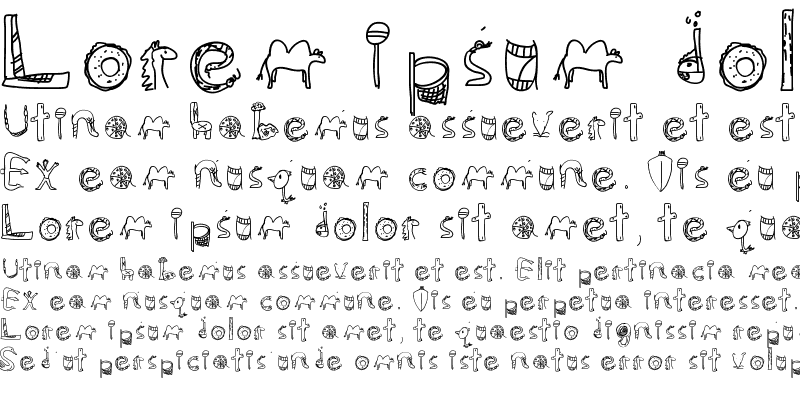 Lorem ipsum dol
Utinam habemus assueverit et est
Ex eam nusquam commune. Vis eu p
Lorem ipsum dolor sit amet, te qua
Utinam habemus assueverit et est. Elit pertinacia mea
Ex eam nusquam commune. Vis eu perpetua interesset.
Lorem ipsum dolor sit amet, te quaestio dignissim repu
Sed ut perspiciatis unde omnis iste natus error sit volup